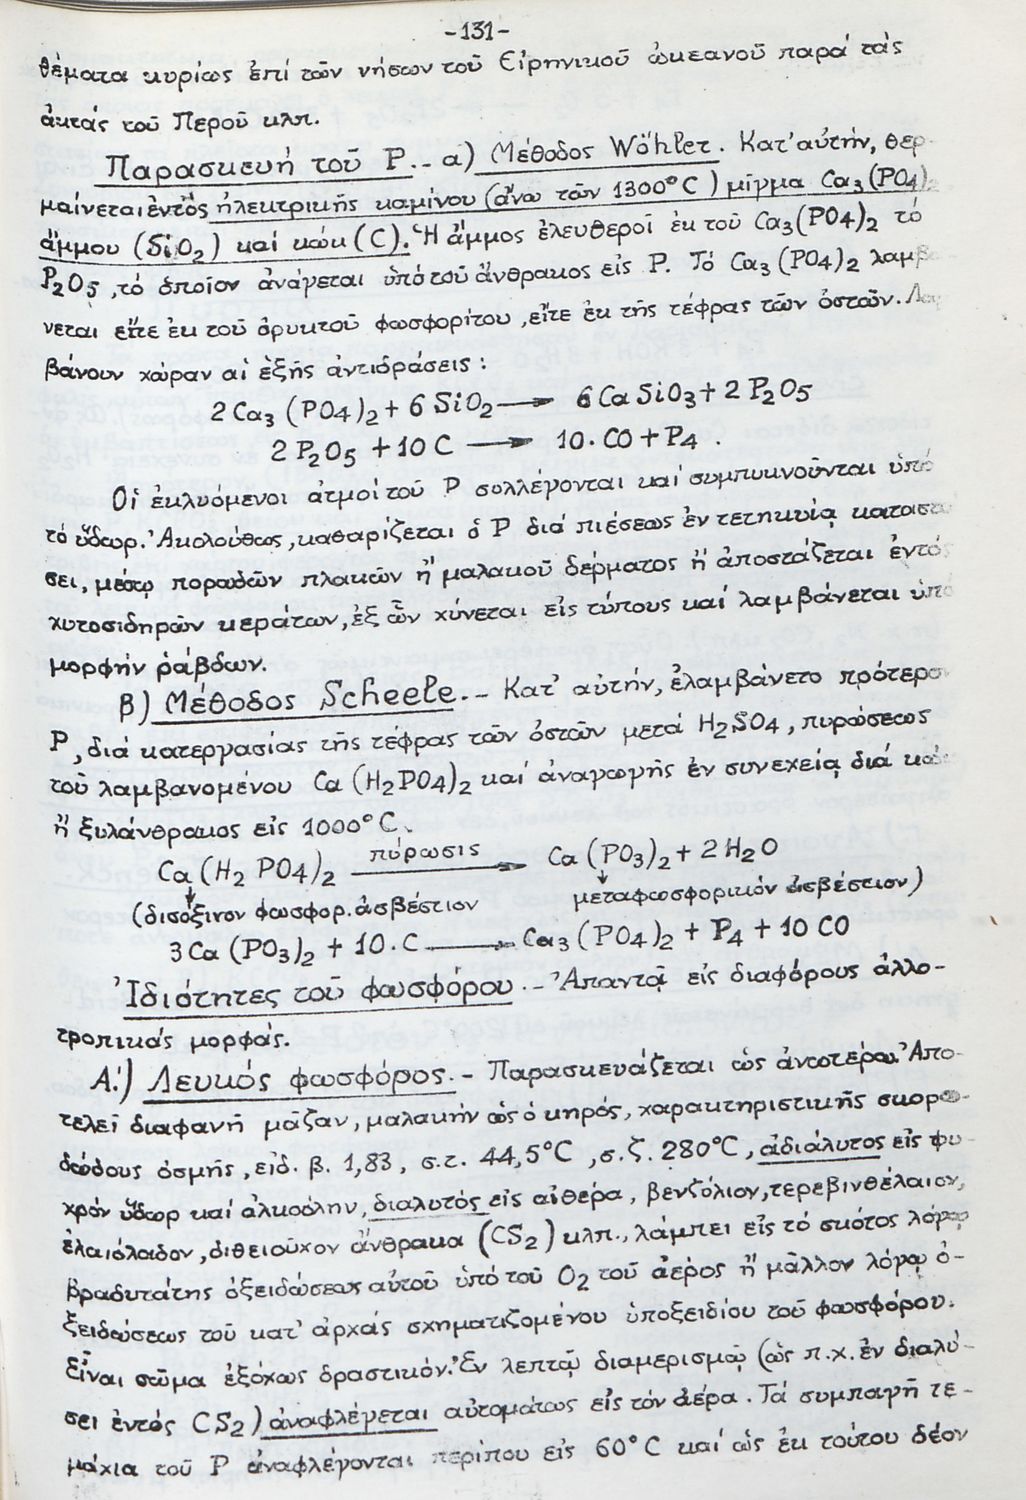 -131-
θέματα κυρίως ἐπί τῶν νήσων τοῦ Εἰρηνικοῦ ὠκεανοῦ παρά τάς
ἀκτάς τοῦ Περοῦ κλπ.
Παρασκευή τοῦ P.- α) Μέθοδος Wöhler. Κατ' αὐτήν, θερ-
μαίνεται ἐντός ἠλεκτρικῆς καμίνου (ἄνω τῶν 1300°C) μῖγμα Ca₃(PO4)₂
ἄμμου (SiO₂) καί κώκ (C). Ἡ ἄμμος ἐλευθεροῖ ἐκ τοῦ Ca₃(PO4)₂ τό
P₂O5, τό ὁποῖον ἀνάγεται ὑπό τοῦ ἄνθρακος εἰς P. Τό Ca₃(PO4)₂ λαμβά-
νεται εἴτε ἐκ τοῦ ὀρυκτοῦ φωσφορίτου, εἴτε ἐκ τῆς τέφρας τῶν ὀστῶν. Λαμ
βάνουν χώραν αἱ ἑξῆς ἀντιδράσεις:
2 Ca₃(PO4)₂ + 6 SiO₂ ⟶ 6 Ca SiO₃ + 2 P₂O5
2 P₂O5 + 10 C ⟶ 10·CO + P₄ .
Οἱ ἐκλυόμενοι ἀτμοί τοῦ P συλλέγονται καί συμπυκνοῦνται ὑπό
τό ὕδωρ. Ἀκολούθως, καθαρίζεται ὁ P διά πιέσεως ἐν τετηκυίᾳ καταστά
σει, μέσῳ πορωδῶν πλακῶν ἤ μαλακοῦ δέρματος ἤ ἀποστάζεται ἐντός
χυτοσιδηρῶν κεράτων, ἐξ ὧν χύνεται εἰς τύπους καί λαμβάνεται ὑπό
μορφήν ῥάβδων.
β) Μέθοδος Scheele.- Κατ' αὐτήν, ἐλαμβάνετο πρότερον
P, διά κατεργασίας τῆς τέφρας τῶν ὀστῶν μετά H₂SO4, πυρώσεως
τοῦ λαμβανομένου Ca(H₂PO4)₂ καί ἀναγωγῆς ἐν συνεχείᾳ διά κώκ
ἤ ξυλάνθρακος εἰς 1000°C.
Ca(H₂PO4)₂ πύρωσις ⟶ Ca(PO₃)₂ + 2 H₂O
(δισόξινον φωσφορ. ἀσβέστιον μεταφωσφορικόν ἀσβέστιον)
3 Ca(PO₃)₂ + 10·C ⟶ Ca₃(PO4)₂ + P₄ + 10 CO
Ἰδιότητες τοῦ φωσφόρου.- Ἀπαντᾷ εἰς διαφόρους ἀλλο-
τροπικάς μορφάς.
Α!) Λευκός φωσφόρος.- Παρασκευάζεται ὡς ἀνωτέρω. Ἀπο-
τελεῖ διαφανῆ μᾶζαν, μαλακήν ὡς ὁ κηρός, χαρακτηριστικῆς σκορο-
δώδους ὀσμῆς, εἰδ. β. 1,83, σ.τ. 44,5°C, σ.ζ. 280°C, ἀδιάλυτος εἰς ψυ-
χρόν ὕδωρ καί ἀλκοόλην, διαλυτός εἰς αἰθέρα, βενζόλιον, τερεβινθέλαιον,
ἐλαιόλαδον, διθειοῦχον ἄνθρακα (CS₂) κλπ., λάμπει εἰς τό σκότος λόγῳ
βραδυτάτης ὀξειδώσεως αὐτοῦ ὑπό τοῦ O₂ τοῦ ἀέρος ἤ μᾶλλον λόγῳ ὀ-
ξειδώσεως τοῦ κατ' ἀρχάς σχηματιζομένου ὑποξειδίου τοῦ φωσφόρου.
Εἶναι σῶμα ἐξόχως δραστικόν. Ἐν λεπτῷ διαμερισμῷ (ὡς π.χ. ἐν διαλύ-
σει ἐντός CS₂) ἀναφλέγεται αὐτομάτως εἰς τόν ἀέρα. Τά συμπαγῆ τε-
μάχια τοῦ P ἀναφλέγονται περίπου εἰς 60°C καί ὡς ἐκ τούτου δέον